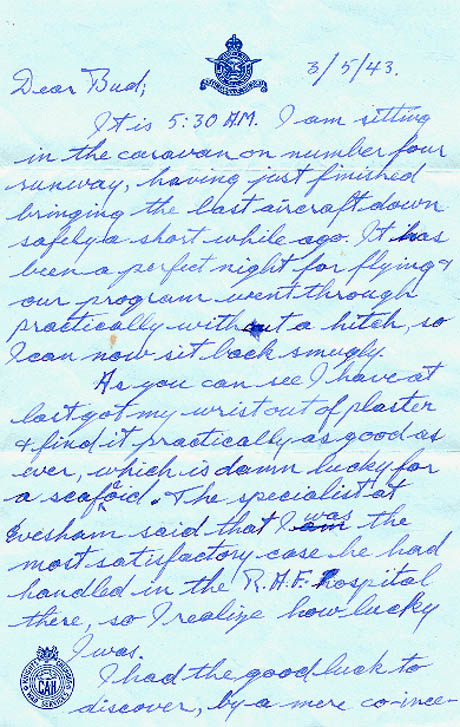 3/5/43.
Dear Bud;
It is 5:30 A.M. I am sitting
in the caravan on number four
runway, having just finished
bringing the last aircraft down
safely a short while ago. It has
been a perfect night for flying &
our program went through
practically without a hitch, so
I can now sit back smugly.
As you can see I have at
last got my wrist out of plaster
& find it practically as good as
ever, which is damn lucky for
a scafoid. The specialist at
Evesham said that I am was the
most satisfactory case he had
handled in the R.A.F. Hospital
there, so I realize how lucky
I was.
I had the good luck to
discover, by a mere co-ince-
KNIGHTS OF COLUMBUS
CAH
WAR SERVICES